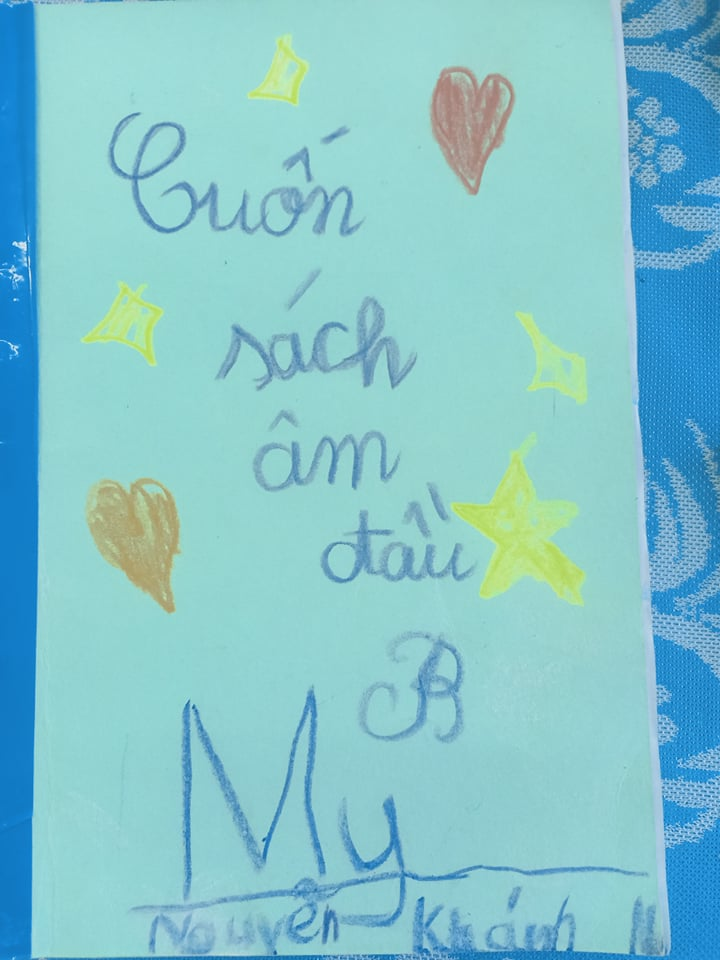 Cuốn
sách
âm
đầu
B
My
Nguyễn Khánh